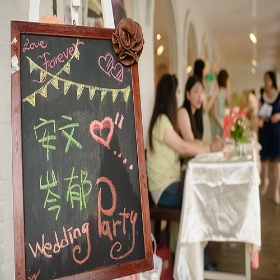 Love
Forever
安文
岑郁
Wedding Party